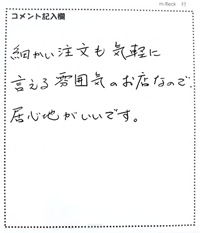 コメント記入欄
細かい注文も気軽に
言える雰囲気のお店なので、
居心地がいいです。